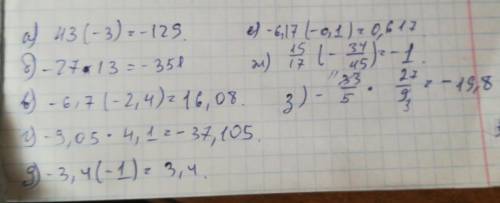 а) 43(-3)=-129.
б) -27·13=-351
в) -6,7(-2,4)=16,08.
г) -9,05·4,1=-37,105.
д) -3,4(-1)=3,4.
е) -6,17(-0,1)=0,617
ж) 15/17(-34/45)=-1
з) - 33/5 · 27/9 3 = -19,8